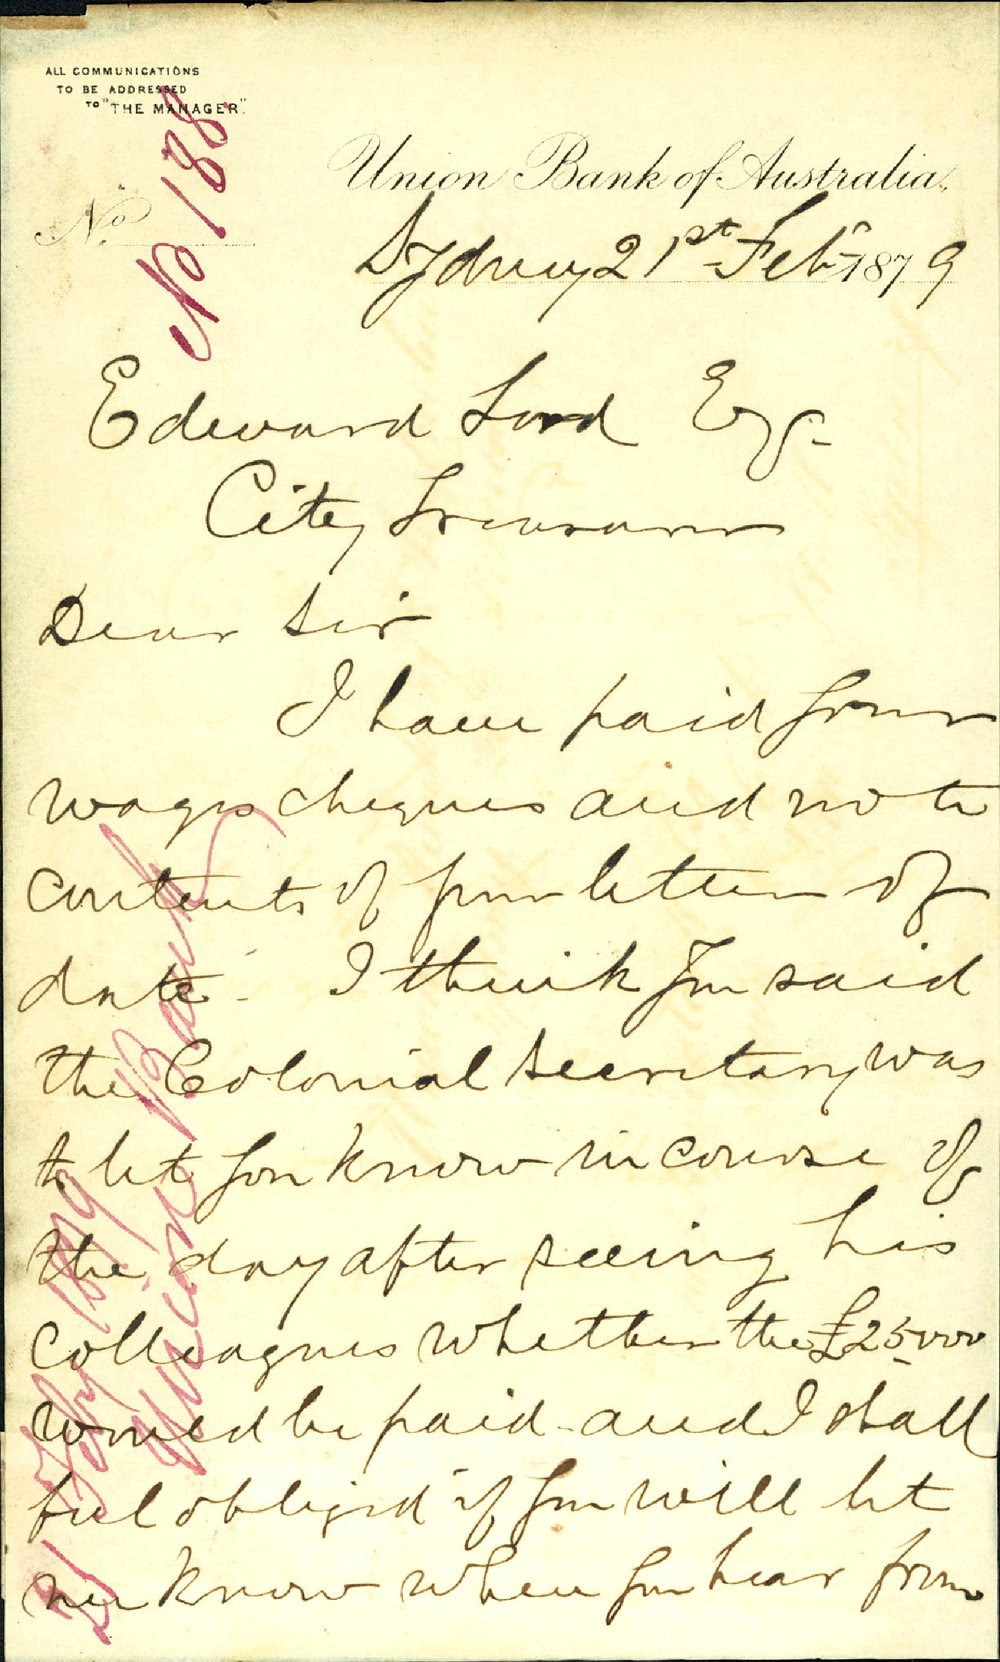 ALL COMMUNICATIONS
TO BE ADDRESSED
TO "THE MANAGER".
Union Bank of Australia,
No.
No 188
Sydney 21st Feby 1879
Edward Lord Esq.
City Treasurer
Dear Sir
I have paid your
wages cheques and note
contents of your letter of
date. I think you said
the Colonial Secretary was
to let you know in course of
the day after seeing his
colleagues whether the £25000
would be paid and I shall
feel obliged if you will let
me know when you hear from
21 Feby 1879
Union Bank